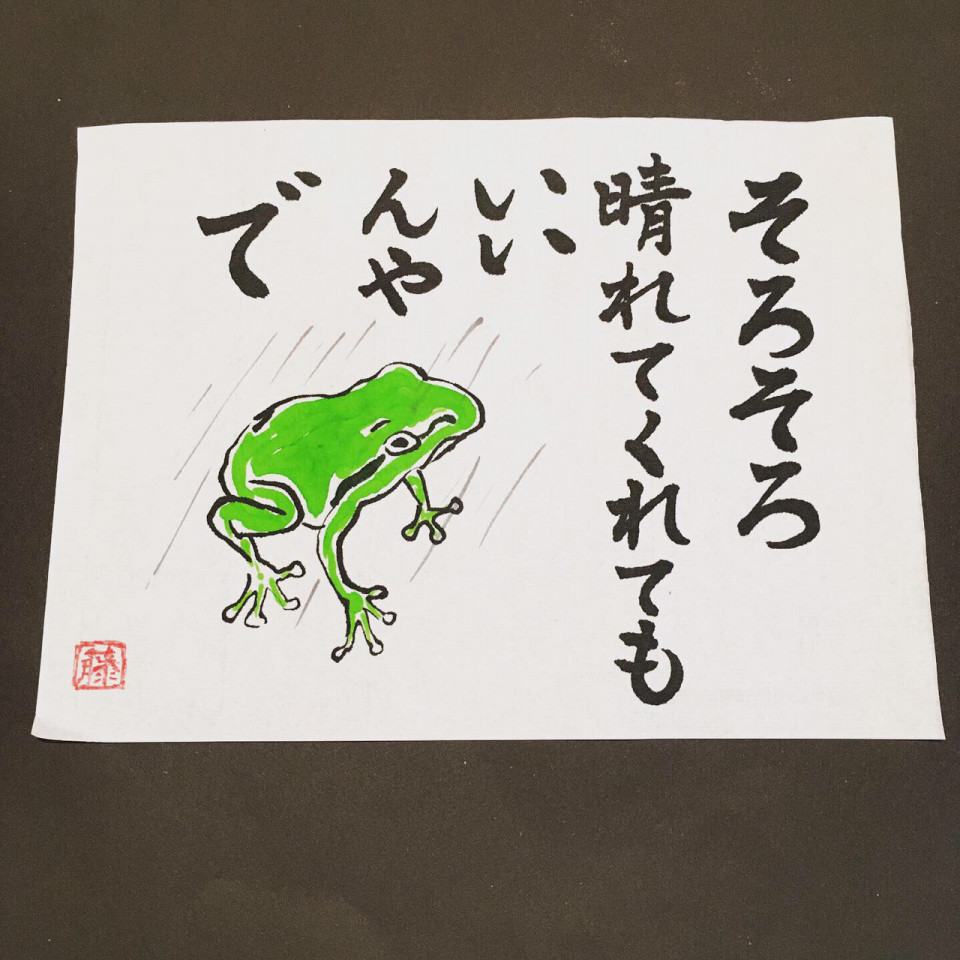 そろそろ
晴れてくれても
いい
んや
で
藤